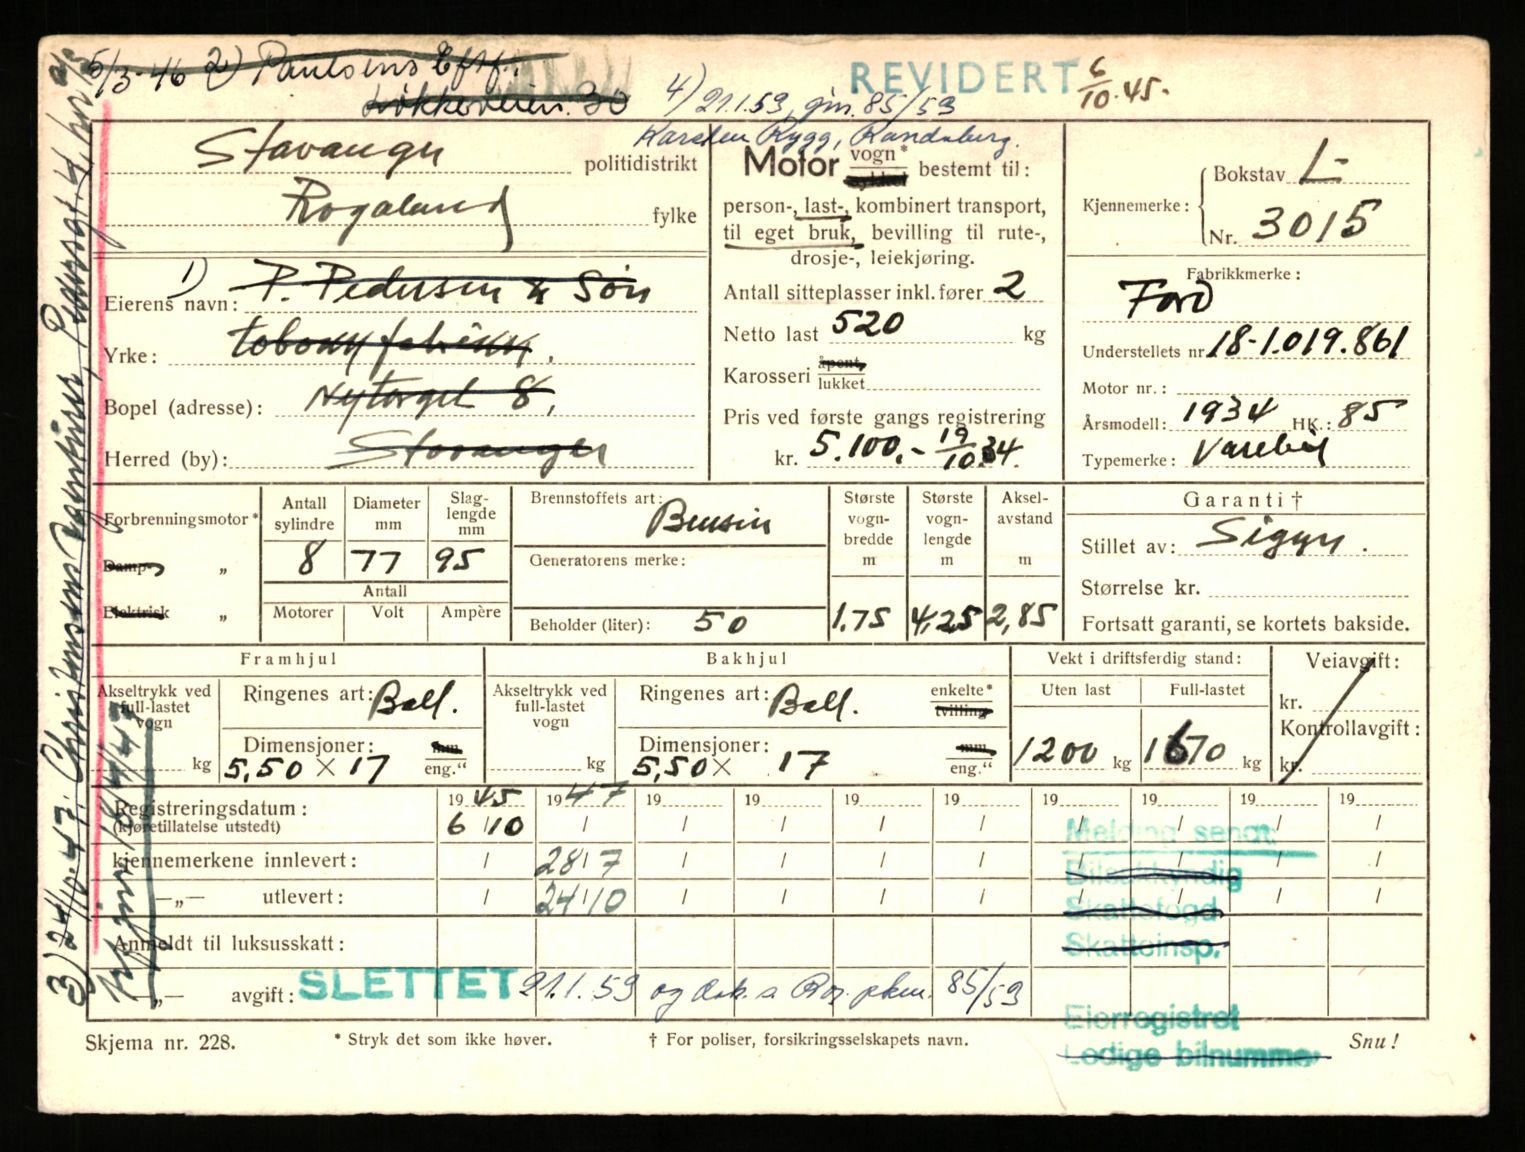 5/3-46 2) Paulsens Eftf.
Løkkeveien 30
REVIDERT 6/10.45.
4) 21.1.59, gjn. 85/59
Karsten Rygg, Randaberg.
Stavanger politidistrikt
Rogaland fylke
Motor vogn* bestemt til:
sykkel
person-, last-, kombinert transport,
til eget bruk, bevilling til rute-,
drosje-, leiekjøring.
Kjennemerke: Bokstav L-
Nr. 3015
1) Eierens navn: P. Pedersen & Søn
Yrke: tobakkfabrikk,
Bopel (adresse): Nytorget 8,
Herred (by): Stavanger
Antall sitteplasser inkl. fører 2
Netto last 520 kg
Karosseri åpent, lukket
Pris ved første gangs registrering
kr. 5.100,- 19/10.34.
Fabrikkmerke:
Ford
Understellets nr. 18-1.019.861
Motor nr.:
Årsmodell: 1934 HK.: 85
Typemerke: Varebil
Forbrenningsmotor*
Damp- „
Elektrisk „
Antall sylindre 8
Diameter mm 77
Slaglengde mm 95
Antall
Motorer Volt Ampère
Brennstoffets art: Bensin
Generatorens merke:
Beholder (liter): 50
Største vognbredde m 1.75
Største vognlengde m 4,25
Akselavstand m 2,85
Garanti †
Stillet av: Sigyn.
Størrelse kr.
Fortsatt garanti, se kortets bakside.
Framhjul
Akseltrykk ved full-lastet vogn kg
Ringenes art: Ball.
Dimensjoner: mm
5,50 × 17 eng."
Bakhjul
Akseltrykk ved full-lastet vogn kg
Ringenes art: Ball. enkelte* tvilling
Dimensjoner: mm
5,50 × 17 eng."
Vekt i driftsferdig stand:
Uten last Full-lastet
1200 kg 1670 kg
Veiavgift:
kr.
Kontrollavgift:
kr.
Registreringsdatum: 1945 1947 19 19 19 19 19 19 19 19
(kjøretillatelse utstedt) 6/10 / / / / / / / / /
kjennemerkene innlevert: / 28/7 / / / / / / / /
—„— utlevert: / 24/10 / / / / / / / /
Anmeldt til luksusskatt:
—„— avgift: SLETTET 21.1.59 og dok. s. Rog. pkm. 85/59
Melding sendt:
Bilsakkyndig
Skattefogd
Skatteinsp.
Eierregistret
Ledige bilnummer
Skjema nr. 228. * Stryk det som ikke høver. † For poliser, forsikringsselskapets navn. Snu!
3) 24/10.47. Christensens Agenturer,